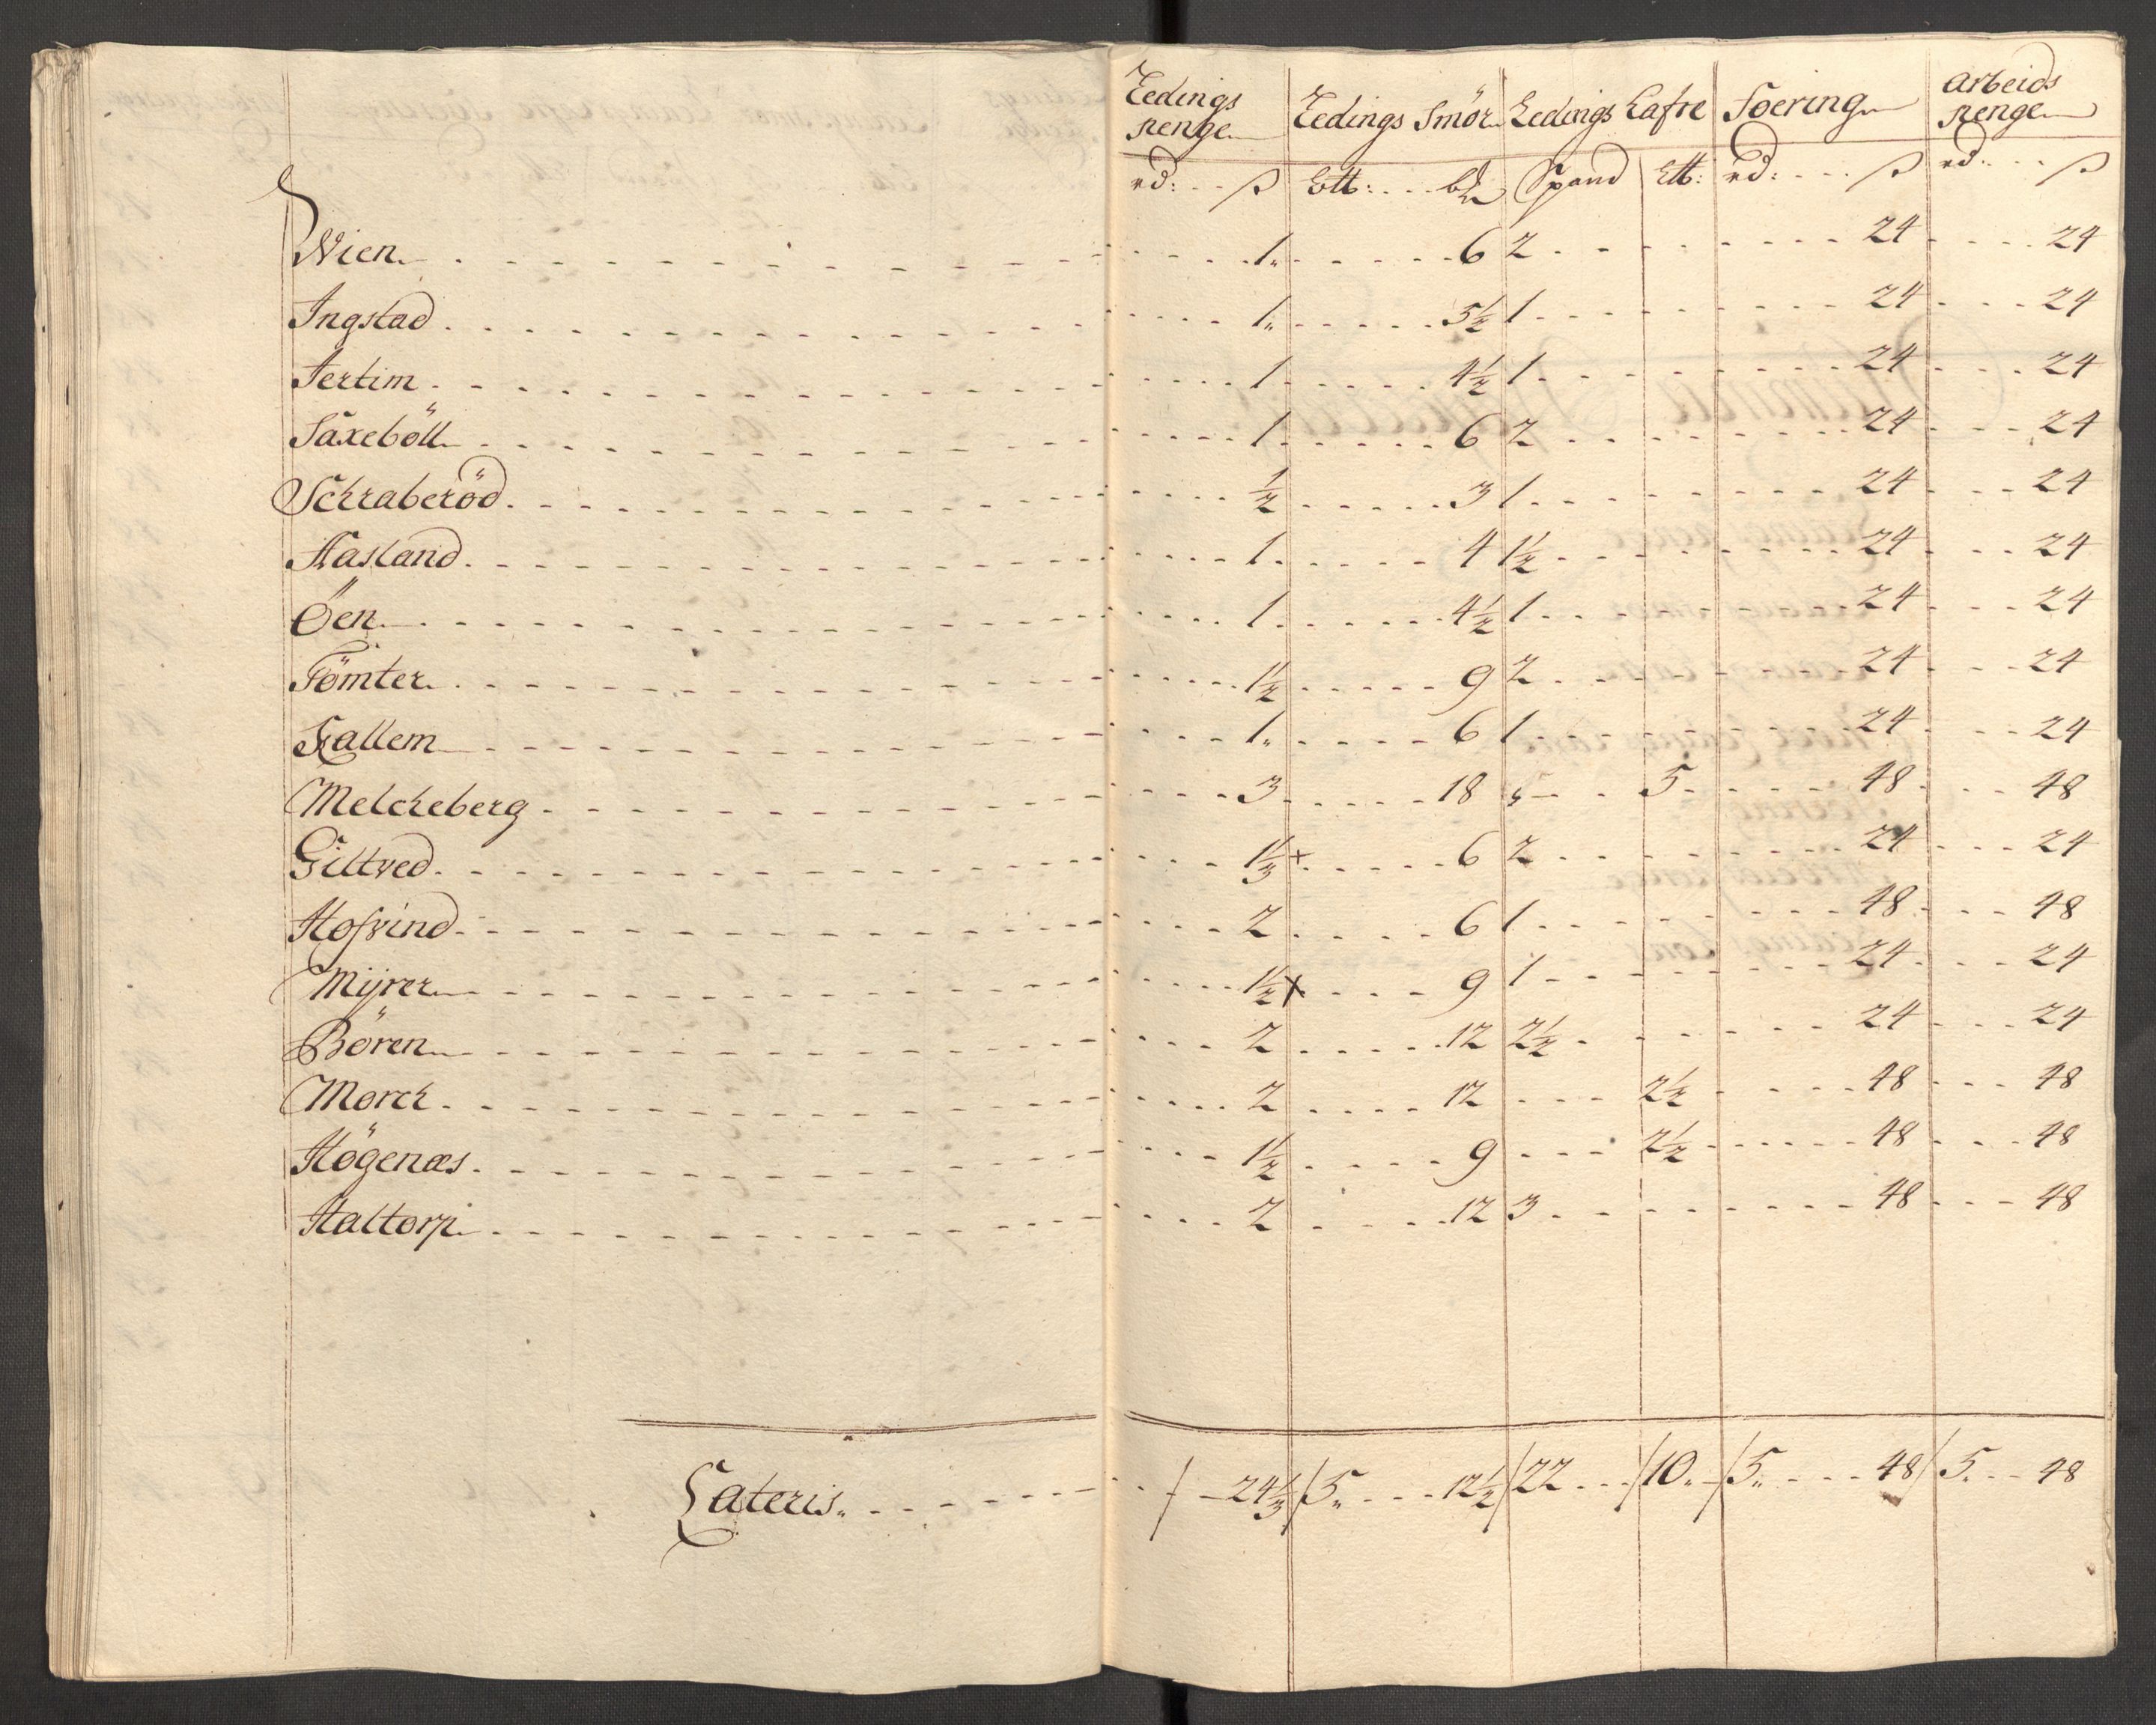 Ledings penge Ledings Smör Ledings Hafre Foering Arbeids penge
rd: ß Ltt: bl Spand Ltt: rd: ß rd: ß
Wien 1 6 2 24 24
Ingstad 1 5½ 1 24 24
Jertim 1 4½ 1 24 24
Saxeböll 1 6 2 24 24
Schraberöd ½ 3 1 24 24
Aasland 1 4 1½ 24 24
Öen 1 4½ 1 24 24
Tömter 1½ 9 2 24 24
Kallem 1 6 1 24 24
Melcheberg 3 18 5 48 48
Giltved 1⅓ + 6 2 24 24
Hofvind 2 6 1 48 48
Mÿrer 1½ + 9 1 24 24
Bören 2 12 2½ 24 24
Morch 2 12 2½ 48 48
Högenæs 1½ 9 2½ 48 48
Haltorp 2 12 3 48 48
Lateris 24⅓ / 5 12½ / 22 / 10 / 5 48 / 5 48